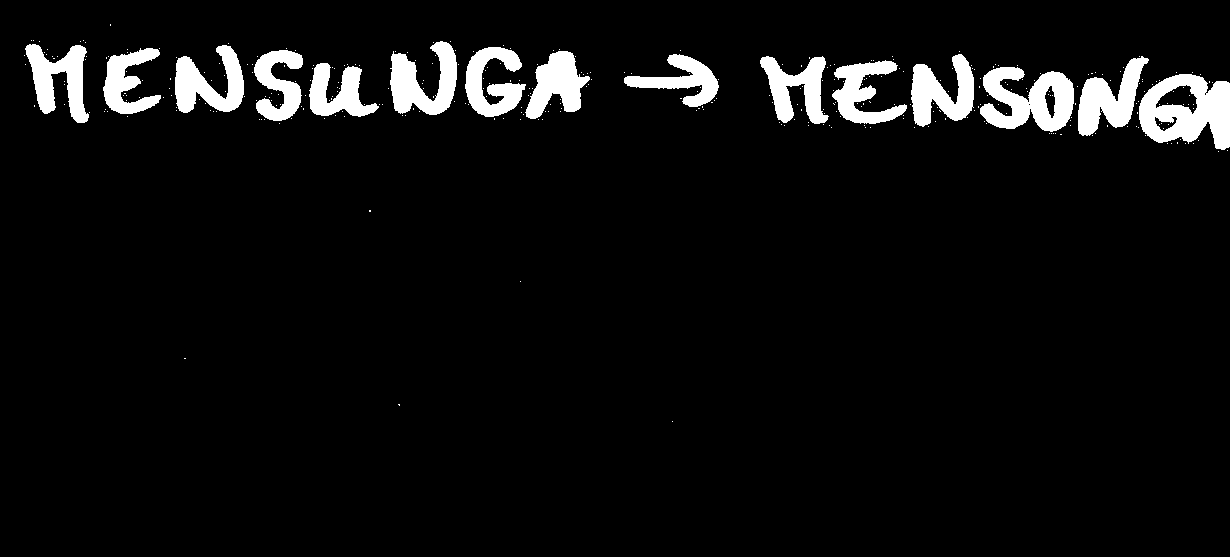 MENSUNGA → MENSONGA